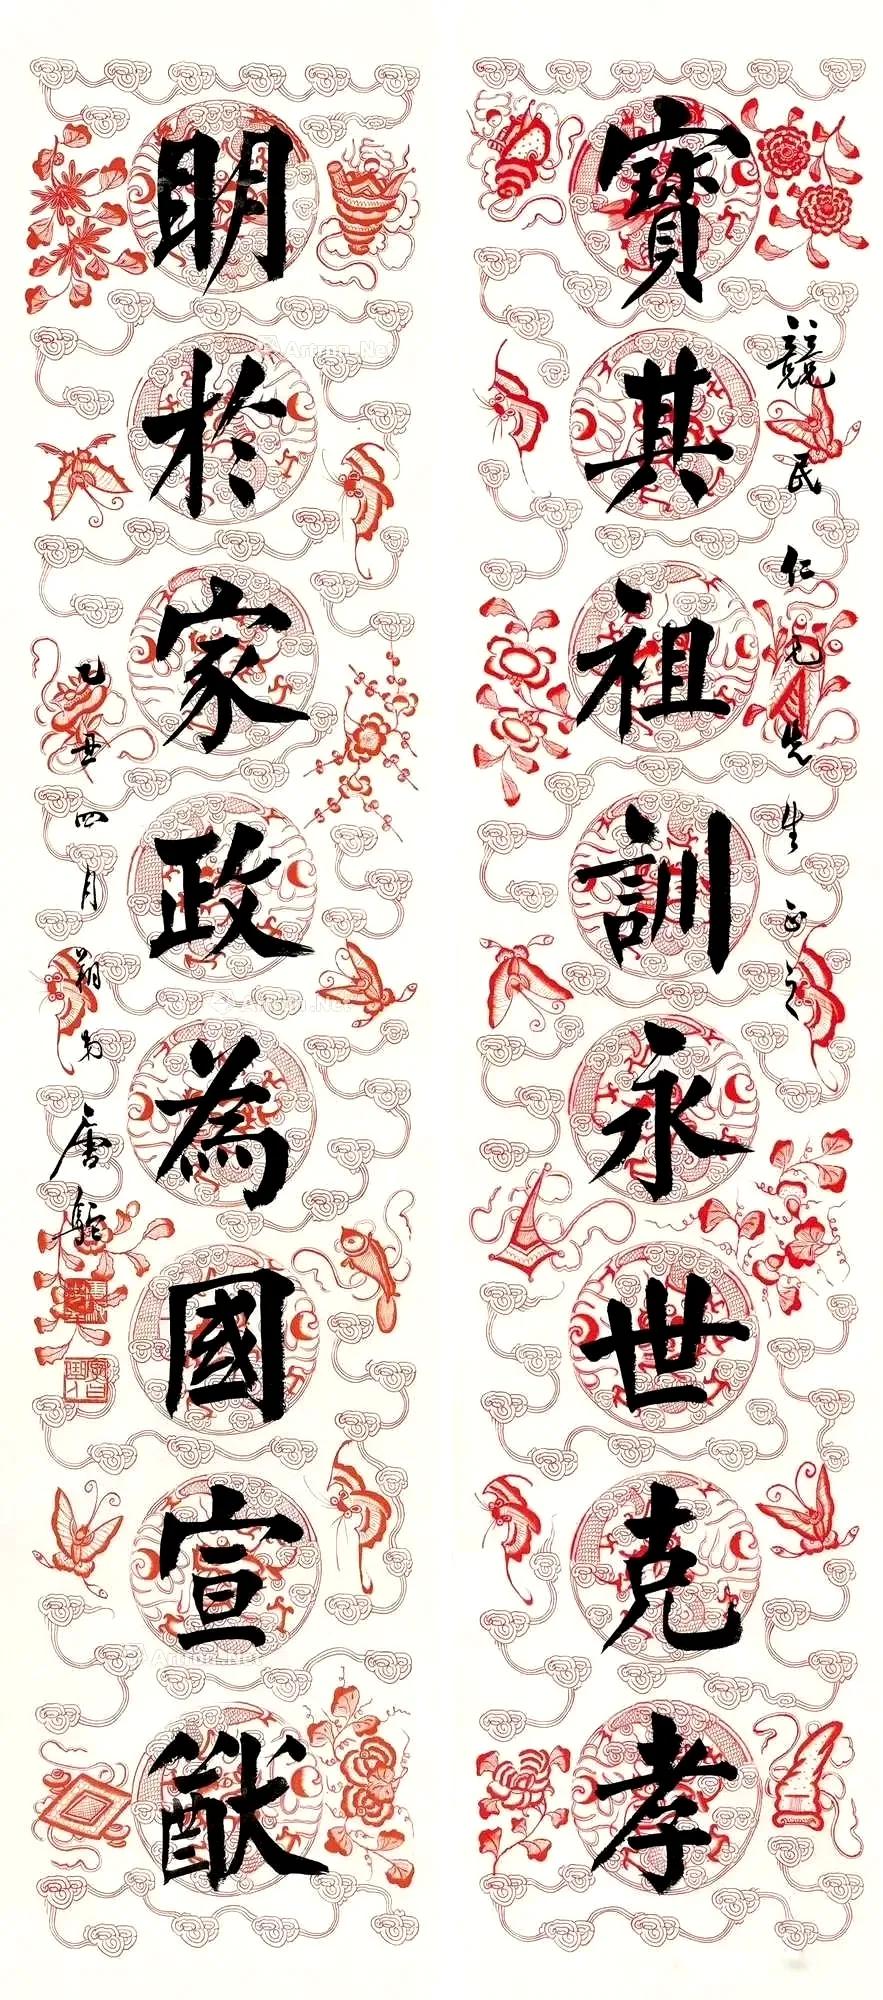 寶其祖訓永世克孝
競民仁兄先生正之
明於家政為國宣猷
乙丑四月
唐駝
Artron.Net
Artron.Net
Artron.Net